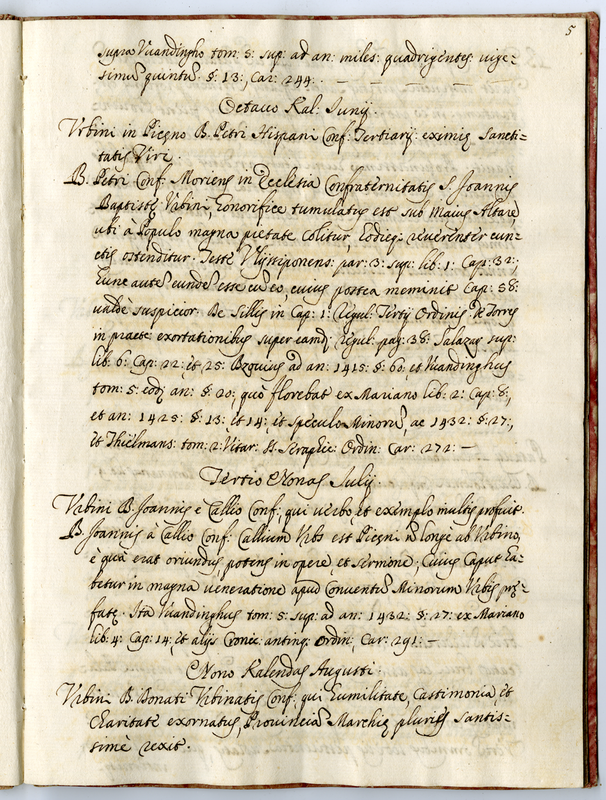 5
supra Vuandingho tom: 5: sup: ad an: miles: quadrigentes: uige=
simũ quintũ §: 13:, Car: 244: —
Octauo Kal: Junij
Vrbini in Piceno B. Petri Hispani Conf: Tertiarij: eximię Sancti=
tatis Viri.
B. Petri Conf: Moriens in Ecclesia Confraternitatis S. Joannis
Baptistę Vrbini, honorifice tumulatus est sub Maius Altare,
ubi à Populo magna pietate colitur, hodieq; reuerenter cun=
ctis ostenditur. Teste Vlyssiponens: par: 3: sup: lib: 1: Cap: 32:,
hunc autẽ eundẽ esse cũ eo, cuius postea meminit Cap: 58:
ualdè suspicor. De Sillis in Cap: 1: Regul: Tertij Ordinis, de Torres
in praefat: exortationibus super eamd: Regul: pag: 38: Salazas sup:
lib: 6: Cap: 22: et 25: Bzouius ad an: 1415: §: 60: et Vuandinghus
tom: 5: eodẽ an: §: 20:, quò florebat ex Mariano lib: 2: Cap: 8:,
et an: 1425: §: 13: et 14:, et Speculo Minorũ, ac 1432: §: 27:,
et Thielmans: tom: 2: Vitar: SS. Seraphic: Ordin: Car: 272: —
Tertio Nonas Julij.
Vrbini B. Joannis è Callio Conf:, qui uerbo, et exemplo multis profuit.
B. Joannis à Callio Conf: Callium Vrbs est Piceni nõ longe ab Vrbino,
è quà erat oriundus, potens in opere, et sermone; Cuius Caput ha=
betur in magna ueneratione apud Conuentũ Minorum Vrbis prę=
fatę. Ita Vuandinghus tom: 5: sup: ad an: 1432: §: 27: ex Mariano
lib: 4: Cap: 14:, et alijs Cronic: antiq: Ordin:, Car: 291: —
Nono Kalendas Augusti.
Vrbini B. Bonati Vrbinatis Conf: qui humilitate, Castimonia, et
Charitate exornatus, Prouinciã Marchię pluries Sanctis=
simè rexit.